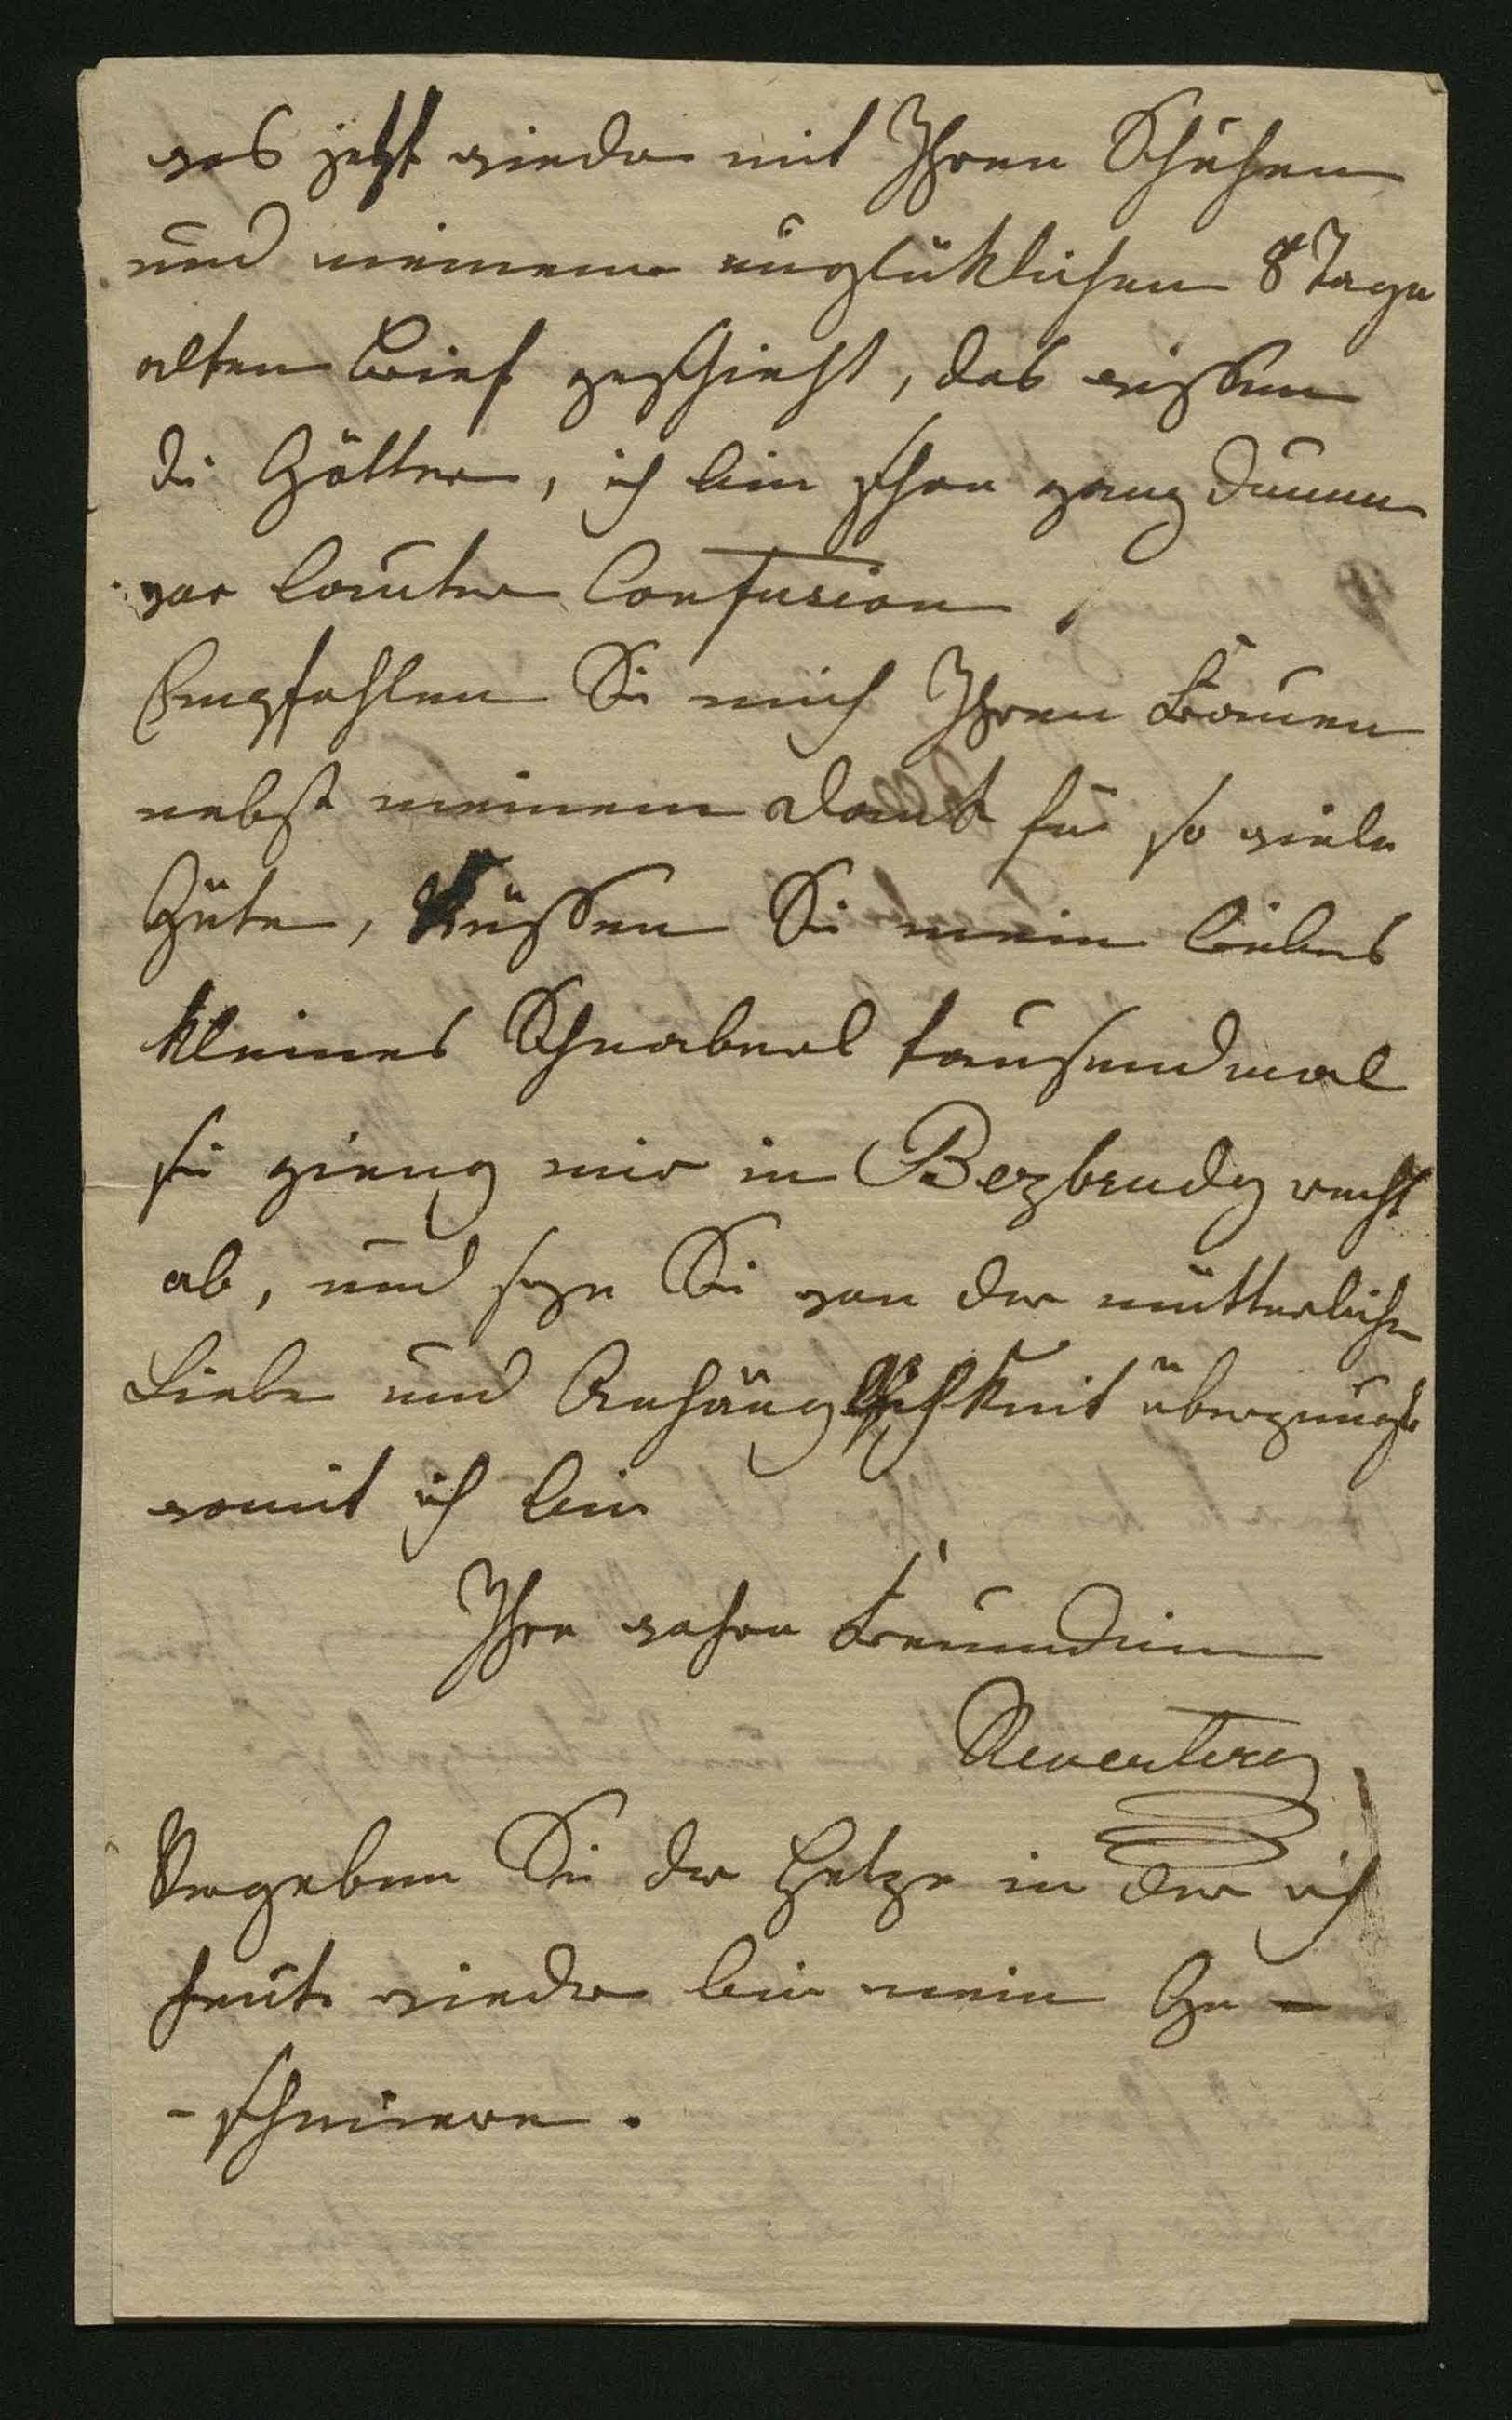 was jetzt wieder mit Ihren Schuhen
und meinem unglüklichen 8 Tage
alten Brief geschieht, das wissen
die Götter, ich bin schon ganz dumm
vor lauter Confusion
Empfehlen Sie mich Ihren Frauen
nebst meinem Dank für so viele
Güte, küssen Sie mein liebes
kleines Schnaberl tausendmal
sie gieng mir in recht
ab, und seyn Sie von der mütterlichen
Liebe und Anhänglichkeit überzeugt
womit ich bin
Ihre wahre Freundin
Vergeben Sie der Hetze in der ich
heute wieder bin mein Ge-
-schmiere.